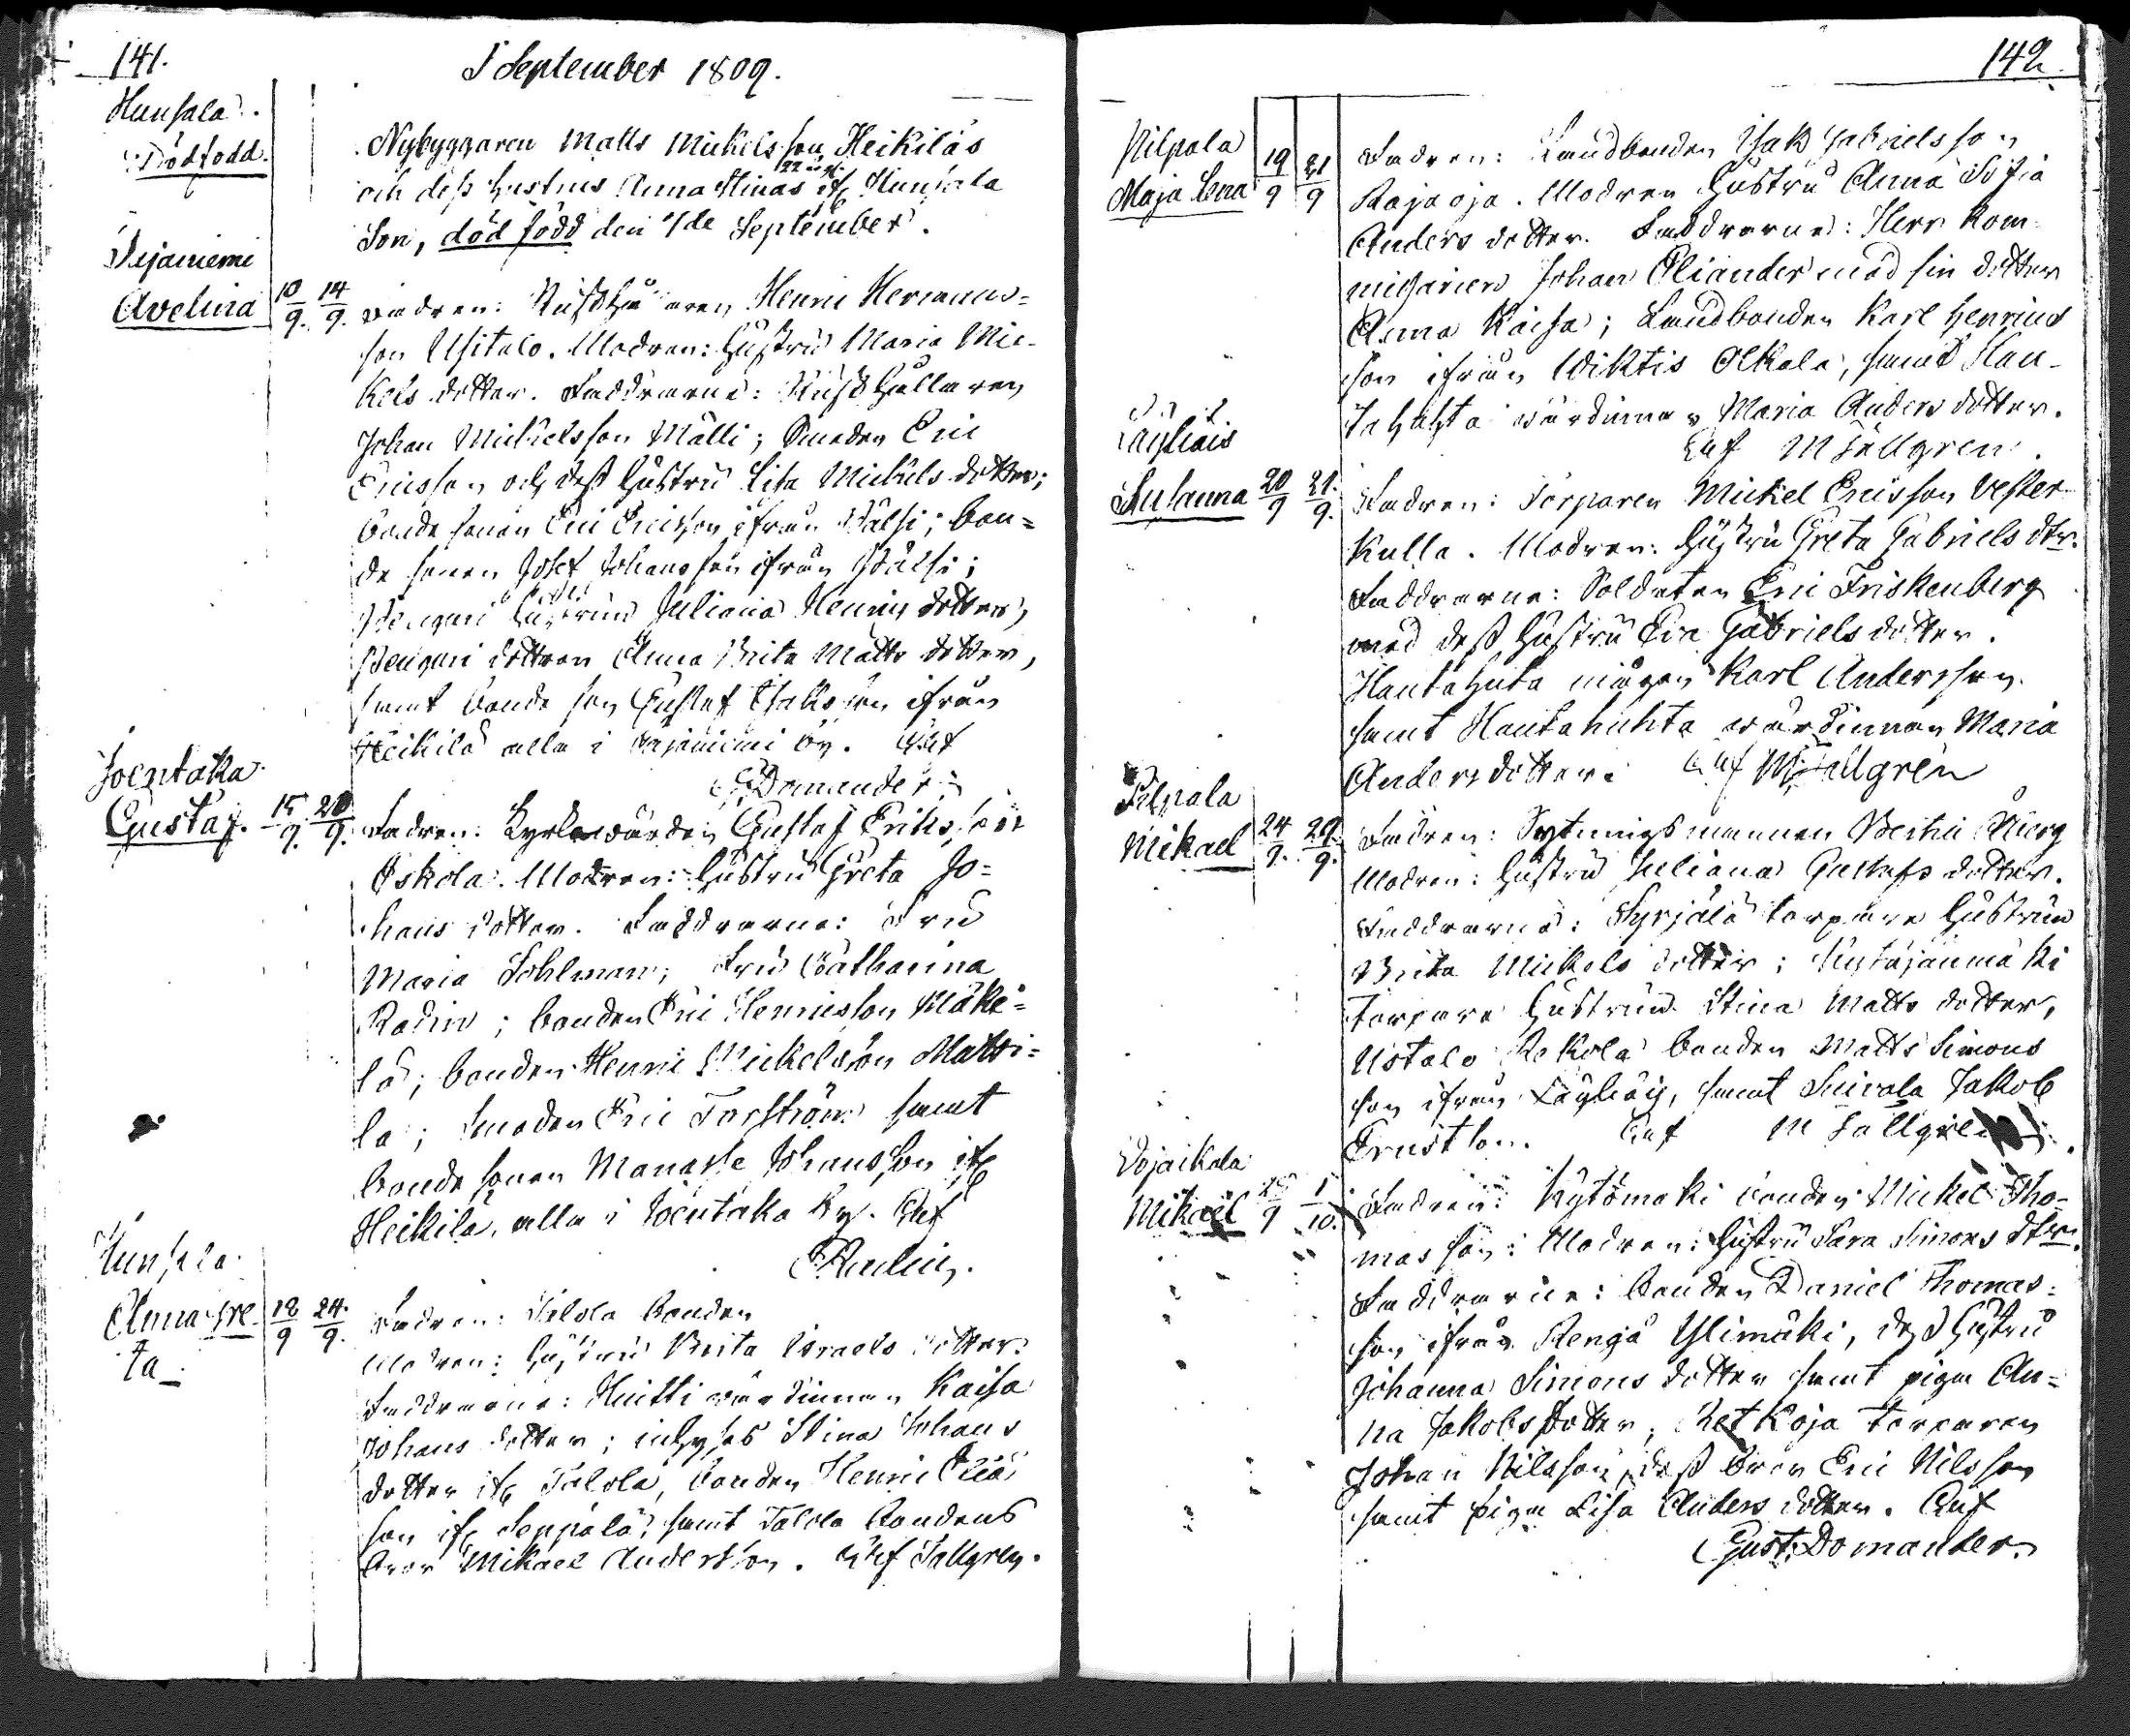 141.
I September 1809.
Hunsala.
Dödfödd.
Nybyggaren Matts Mickelsson Heikiläs
och dess hustrus Anna Stinas 22 år if Hunsala
Son, död född den 1/de September.
Pejaniemi
Avelina 10/9. 14/9.
Fadren: Rusthållaren Henric Hermans=
son Usitalo. Modren: Hustru Maria Mic-
kels dotter. Faddrarne: Rusthållaren
Johan Michelsson Mälli; Smeden Eric
Ericsson och dess hustru Lisa Michels dotter;
bonde sonen Eric Ericsson ifrån Pälsi; bon=
de sonen Josef Johansson ifrån Pälsi;
Pengari hustrun Juliana Henrics dotter,
Pengari dottren Anna Brita Matts dotter,
samt bonde son Gustaf Isaksson ifrån
Heikilä alla i Pejaniemi by. Test
G. Domander.
Joentaka
Gustaf. 15/9. 20/9.
Fadren: Kyrkowärden Gustaf Eriksson
Eskola. Modren: Hustru Greta Jo=
hans dotter. Faddrarne: Fru
Maria Sohlman; Fru Catharina
Radin; bonden Eric Henricsson Mäke=
lä; bonden Henric Mickelsson Matti=
la; Smeden Eric Forsström samt
bonde sonen Manasse Johansson if
Heikilä, alla i Joentaka by. Test
Paulin.
Hunsala
Anna Gre-
ta 12/9 24/9.
Fadren: Talola bonden
Modren: Hustru Brita Israels dotter.
Faddrarne: Huitti wärdinnan Kaisa
Johans dotter; inhyses Stina Johans
dotter if Talola, bonden Henric Eliä
son if Seppälä, samt Talola bondens
bror Mikael Andersson. Test Tallgren.
142.
Pilpala
Maja Lena 19/9 21/9
Fadren: Landbonden Isak Gabrielsson
Rajaoja. Modren Hustru Anna Sofia
Anders dotter. Faddrarne: Herr Kom-
missarien Johan Oliander med sin dotter
Anna Kaisa; Landbonden Karl Henrics
son ifrån Wiktis Olkala, samt Hau-
tahuhta wärdinnan Maria Anders dotter.
Test M Tallgren.
Läyliäis
Susanna 20/9 21./9.
Fadren: Torparen Mickel Ericsson Vester-
kulla. Modren: Hustru Greta Gabriels dtr.
Faddrarne: Soldaten Eric Friskenberg
med dess hustru Eva Gabriels dotter.
Hautahuta mågen Karl Andersson
samt Hautahuhta wärdinnan Maria
Anders dotter. Test M Tallgren
Pilpala
Mikael 24/9. 29/9.
Fadren: Sytningsmannen Bertil Nierg
Modren: Hustru Juliana Gustafs dotter.
Faddrarne: Syrjälä torpare hustrun
Brita Mickels dotter; Kytäjänmäki
torpare hustrun Stina Matts dotter,
Ustalo Rekola bonden Matts Simons
son ifrån Läyliäis, samt Suirala Jakob
Ernstson. Test M Tallgren.
Vojaikala
Mikael 25/9 1/10.
Fadren: Kytömäki bonden Mickel Tho=
mas son: Modren: Hustru Sara Simons dtr.
Faddrarne: bonden Daniel Thomas=
son ifrån Rengå Ylimäki, dess hustru
Johanna Simons dotter samt pigan An=
na Jakobs dotter; Retkoja torparen
Johan Nilsson, dess bror Eric Nilsson
samt pigan Lisa Anders dotter. Test
Gust. Domander.